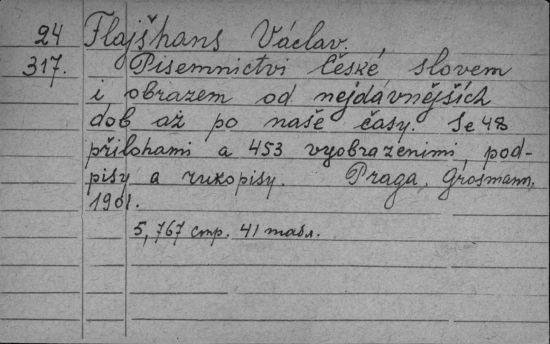 24 Flajšhans Václav.
317. Pisemnictvi České slovem
i obrazem od nejdávnějších
dob až po naše časy. Se 48
přilohami a 453 vyobrazenimi, pod-
pisy a rukopisy. Praga, Grosmann,
1901.
5, 767 стр. 41 табл.